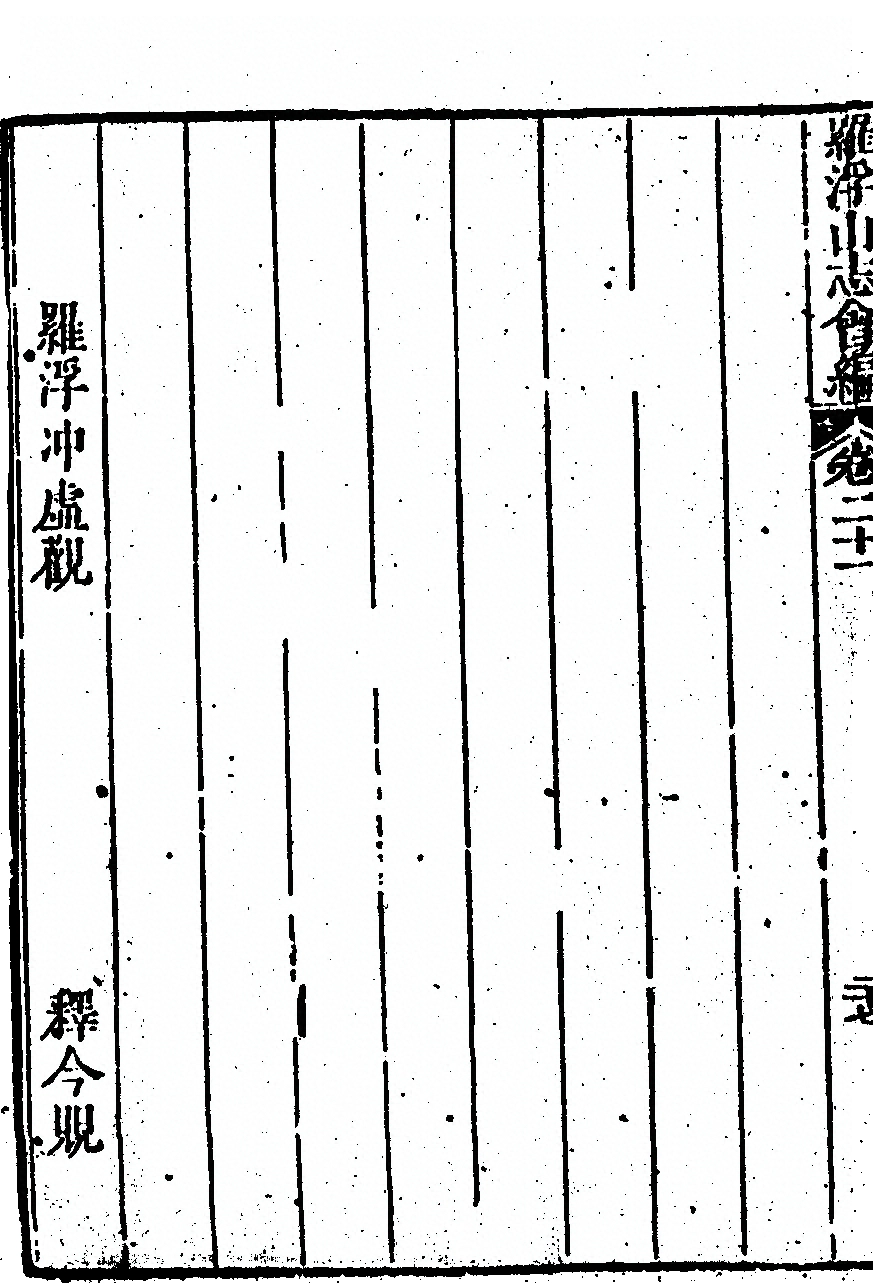 羅浮山志會編 卷二十一
羅浮冲虛觀 釋今